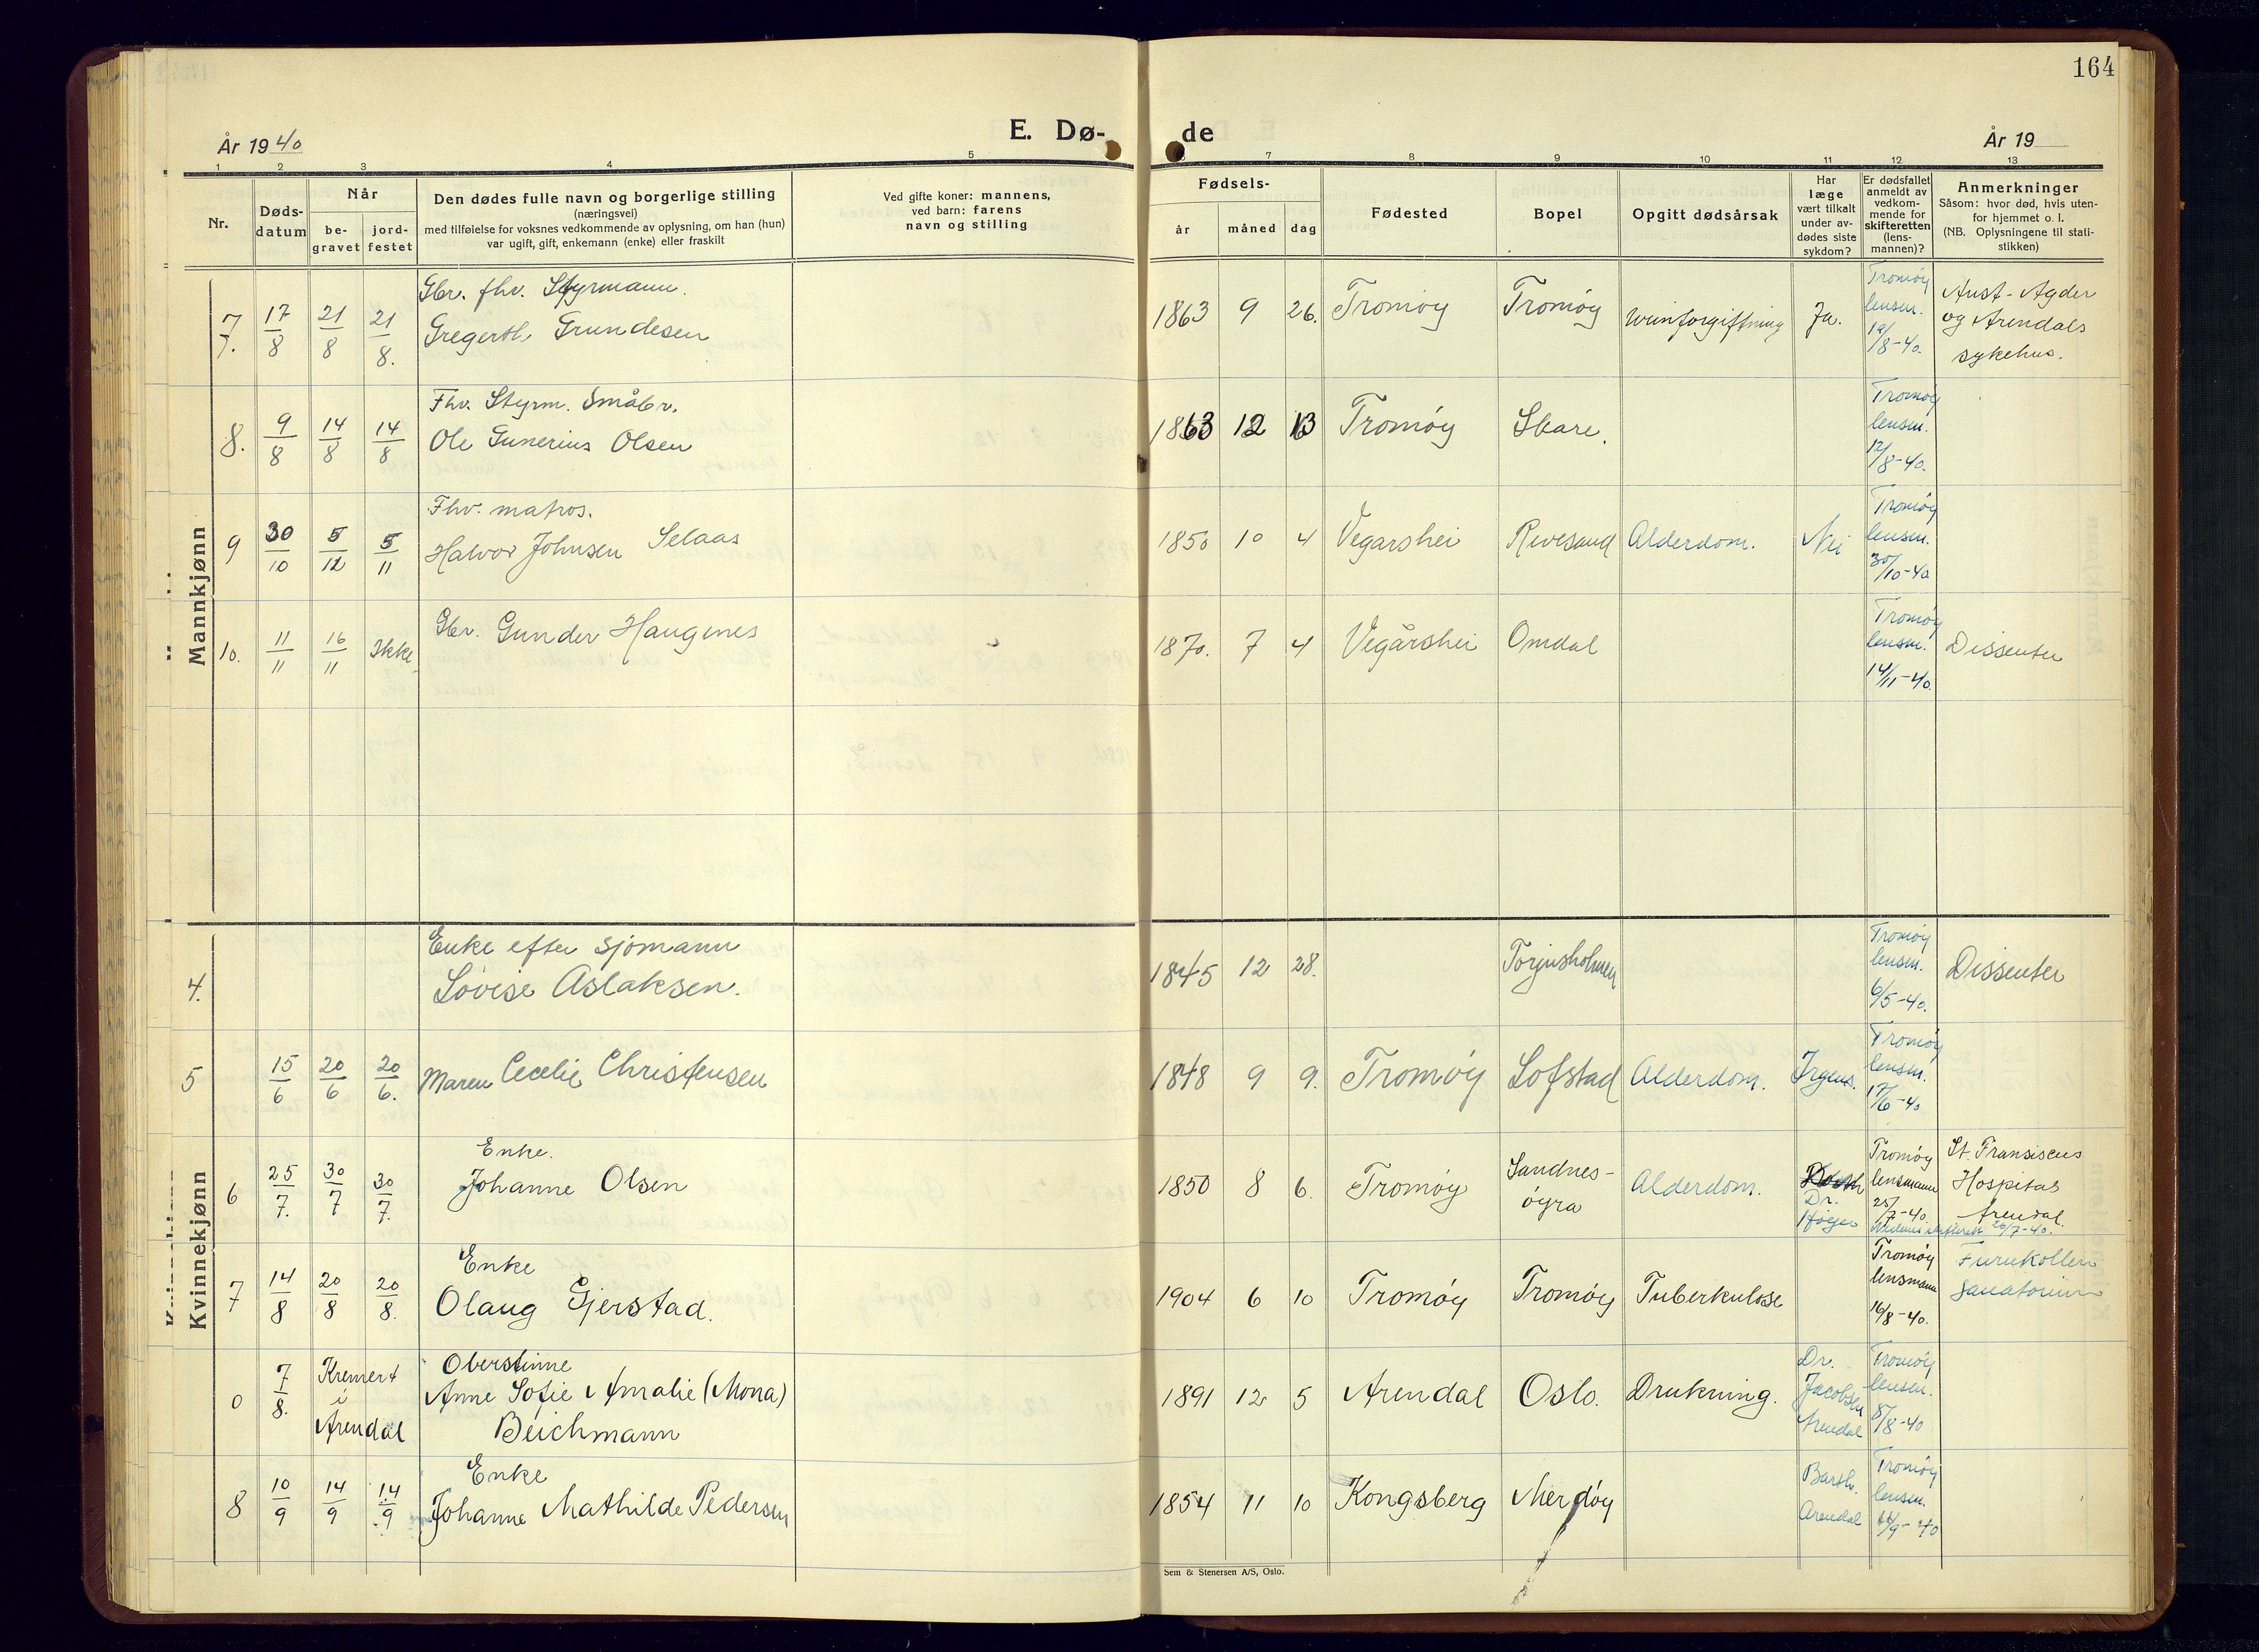 164
År 1940
E. Dø-
de
År 19
1 2 3 4 5 7 8 9 10 11 12 13
Nr.
Døds-
datum
Når
be-
gravet
jord-
festet
Den dødes fulle navn og borgerlige stilling
(næringsvei)
med tilføielse for voksnes vedkommende av oplysning, om han (hun)
var ugift, gift, enkemann (enke) eller fraskilt
Ved gifte koner: mannens,
ved barn: farens
navn og stilling
Fødsels-
år måned dag
Fødested
Bopel
Opgitt dødsårsak
Har
læge
vært tilkalt
under av-
dødes siste
sykdom?
Er dødsfallet
anmeldt av
vedkom-
mende for
skifteretten
(lens-
mannen)?
Anmerkninger
Såsom: hvor død, hvis uten-
for hjemmet o. l.
(NB. Oplysningene til stati-
stikken)
Mannkjønn
7. 17/8 21/8 21/8.
Gbr. fhv. Styrmann.
Gregerth Grundesen
1863 9 26. Tromøy Tromøy
Ja.
Tromøy
lensm.
19/8-40.
Aust-Agder
og Arendals
sykehus.
8. 9/8 14/8 14/8
Fhv. Styrm. Småbr.
Ole Gunerius Olsen
1863 12 13 Tromøy Skare.
Tromøy
lensm.
12/8-40.
9 30/10 5/12 5/11
Fhv. matros.
Halvor Johnsen Selaas
1850 10 4 Vegarshei Revesand Alderdom. Nei
Tromøy
lensm.
30/10-40
10. 11/11 16/11 Ikke
Gbr. Gunder Haugenes
1870. 7 4 Vegårshei Omdal
Tromøy
lensm.
14/11-40.
Dissenter
Kvinnekjønn
4.
Enke efter sjømann
Lovise Aslaksen.
1845 12 28. Torjusholmen
Tromøy
lensm.
6/5-40.
Dissenter
5 15/6 20/6 20/6.
Maren Cecelie Christensen
1848 9 9. Tromøy Lofstad Alderdom. Irgens.
Tromøy
lensm.
17/6-40
6 25/7. 30/7 30/7.
Enke.
Johanne Olsen
1850 8 6. Tromøy
Sandnes-
øyra
Alderdom.
Dr.
Tromøy
lensmann
25/7-40.
St. Fransiscus
Hospital
Arendal.
26/7-40.
7 14/8 20/8 20/8.
Enke
Olaug Gjerstad.
1904 6 10 Tromøy Tromøy Tuberkulose
Tromøy
lensmann
16/8-40.
Furukollen
Sanatorium
0 7/8.
Kremert
i
Arendal
Oberstinne
Anne Sofie Amalie (Mona)
Beichmann
1891 12 5 Arendal Oslo. Drukning.
Dr.
Jacobsen
Arendal
Tromøy
lensm.
8/8-40
8 10/9 14/9 14/9
Enke
Johanne Mathilde Pedersen
1854 11 10 Kongsberg Merdøy
Barth.
Arendal
Tromøy
lensm.
Sem & Stenersen A/S, Oslo.